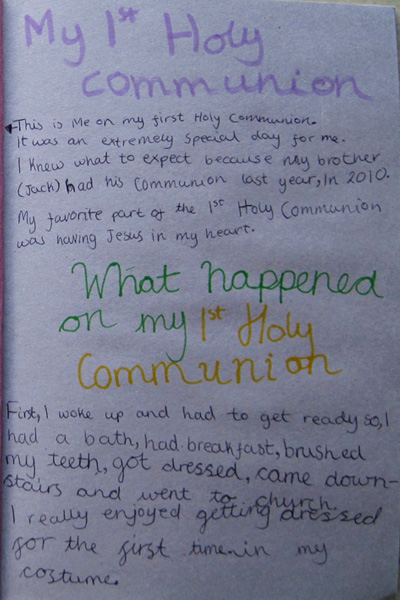 My 1st Holy
communion
This is Me on my first Holy Communion.
It was an extremely special day for me.
I Knew what to expect because my brother
(Jack) had his Communion last year, In 2010.
My favorite part of the 1st Holy Communion
was having Jesus in my heart.
What happened
on my 1st Holy
Communion
First, I woke up and had to get ready so, I
had a bath, had breakfast, brushed
my teeth, got dressed, came down-
stairs and went to church.
I really enjoyed getting dressed
for the first time in my
costume.